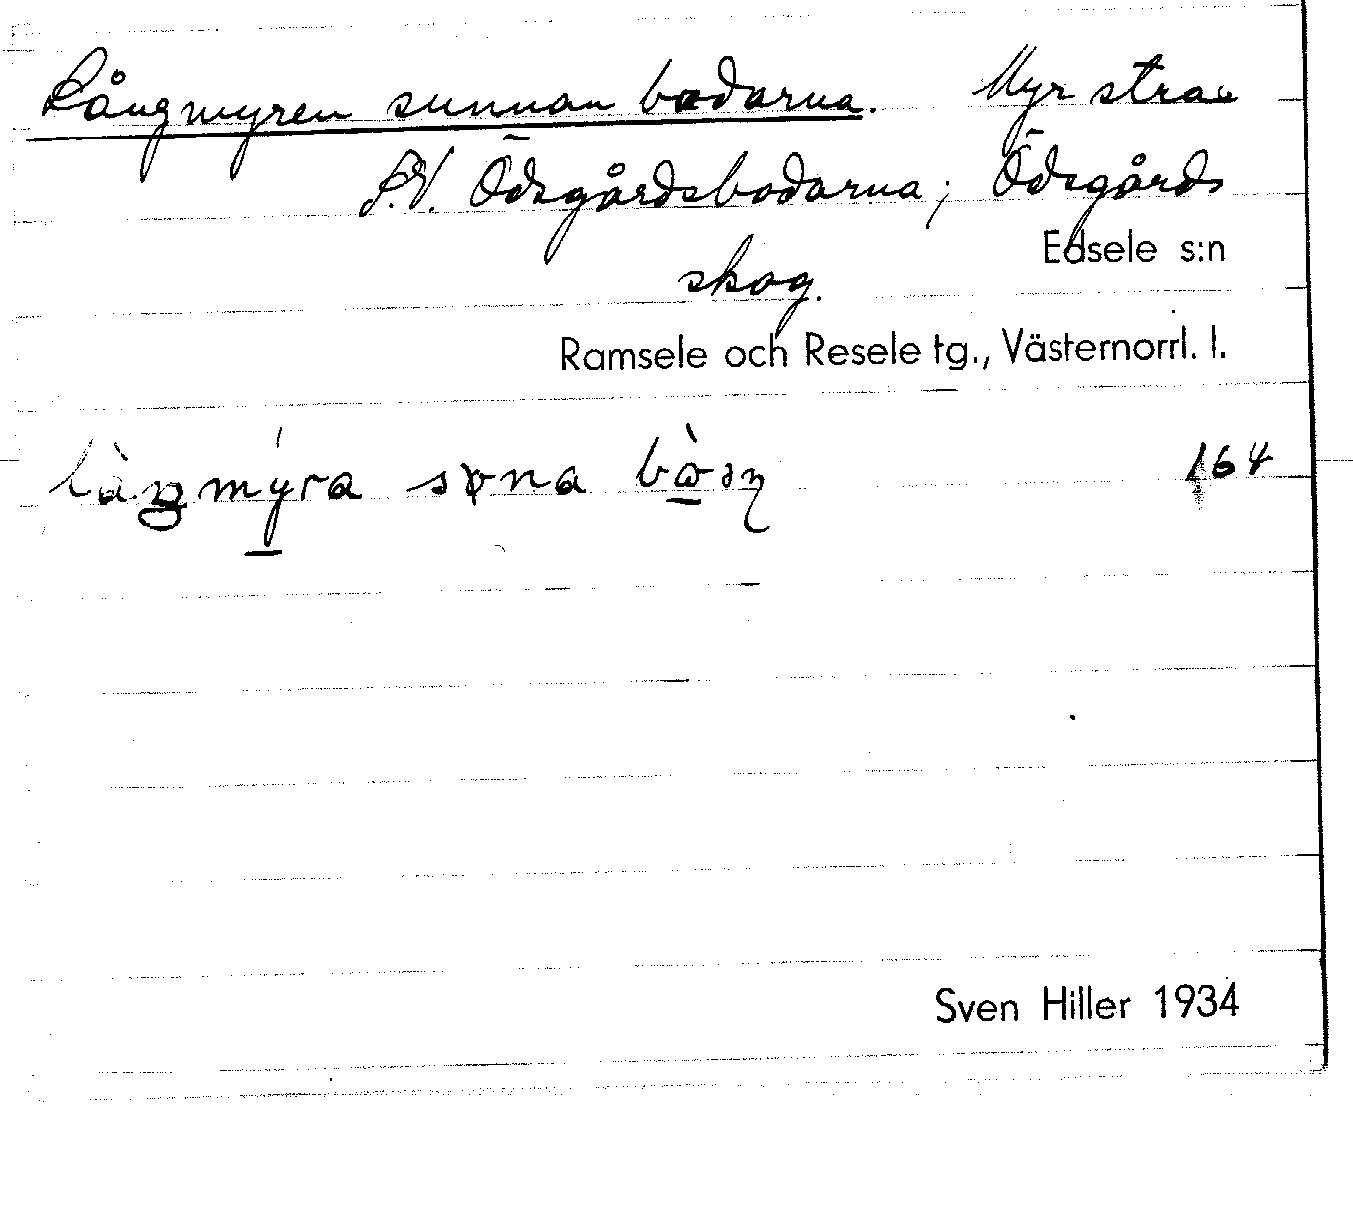 Långmyren sunnan bodarna. Myr strax
S.V. Ödsgårdsbodarna; Ödsgårds
Edsele s:n
skog.
Ramsele och Resele tg., Västernorrl. l.
164
Sven Hiller 1934